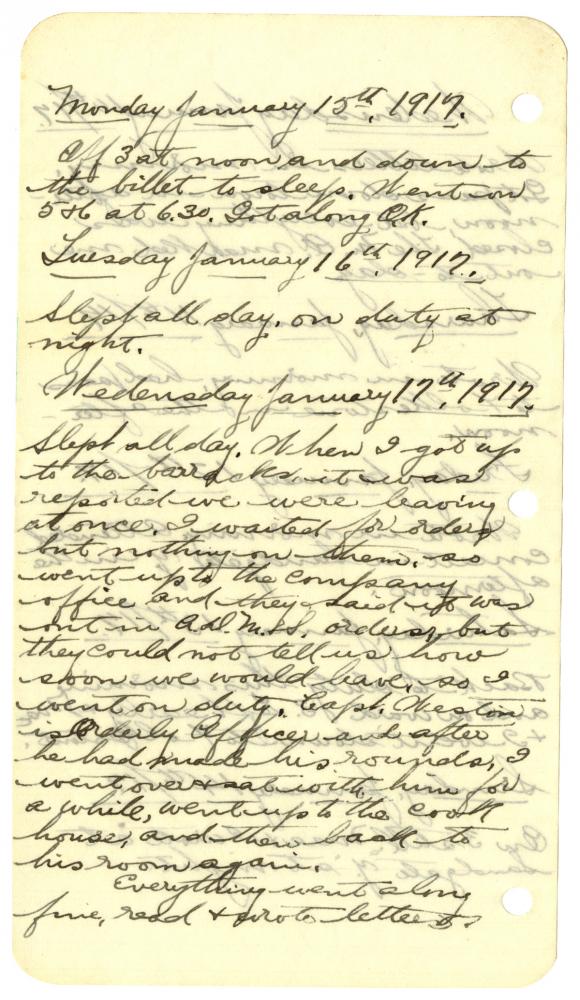 Monday January 15th, 1917.
Off 3 at noon and down to
the billet to sleep. Went on
5+6 at 6.30. Got along O.K.
Tuesday January 16th, 1917.
Slept all day, on duty at
night.
Wedensday January 17th, 1917.
Slept all day. When I got up
to the barracks it was
reported we were leaving
at once. I waited for orders
but nothing on them, so
went up to the company
office and they said it was
out in A.D.M.S. orders, but
they could not tell us how
soon we would leave, so I
went on duty. Capt. Weston
is Orderly Officer and after
he had made his rounds, I
went over + sat with him for
a while, went up to the cook
house, and then back to
his room again.
Everything went along
fine, read + wrote letters.